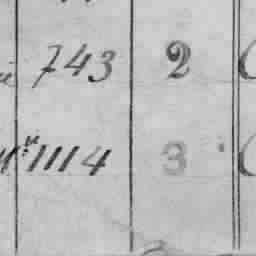 743 2
1114 3